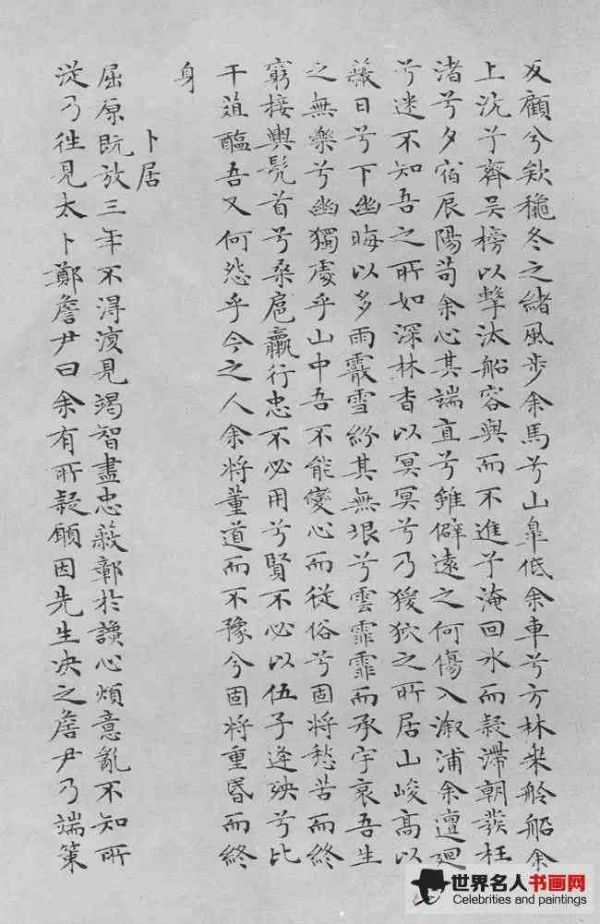 反顧兮欸穐冬之緒風步余馬兮山臯低余車兮方林椉舲船余
上沅兮齊吳榜以擊汰船容與而不進兮淹回水而疑滯朝發枉
渚兮夕宿辰陽苟余心其端直兮雖僻遠之何傷入溆浦余儃迴
兮迷不知吾之所如深林杳以冥冥兮乃猨狖之所居山峻高以
蔽日兮下幽晦以多雨霰雪紛其無垠兮雲霏霏而承宇哀吾生
之無樂兮幽獨處乎山中吾不能變心而從俗兮固將愁苦而終
窮接輿髠首兮桑扈臝行忠不必用兮賢不必以伍子逢殃兮比
干菹醢吾又何怨乎今之人余將董道而不豫兮固將重昏而終
身
卜居
屈原既放三年不得復見竭智盡忠蔽鄣於讒心煩意亂不知所
從乃往見太卜鄭詹尹曰余有所疑願因先生决之詹尹乃端策
世界名人书画网
Celebrities and paintings